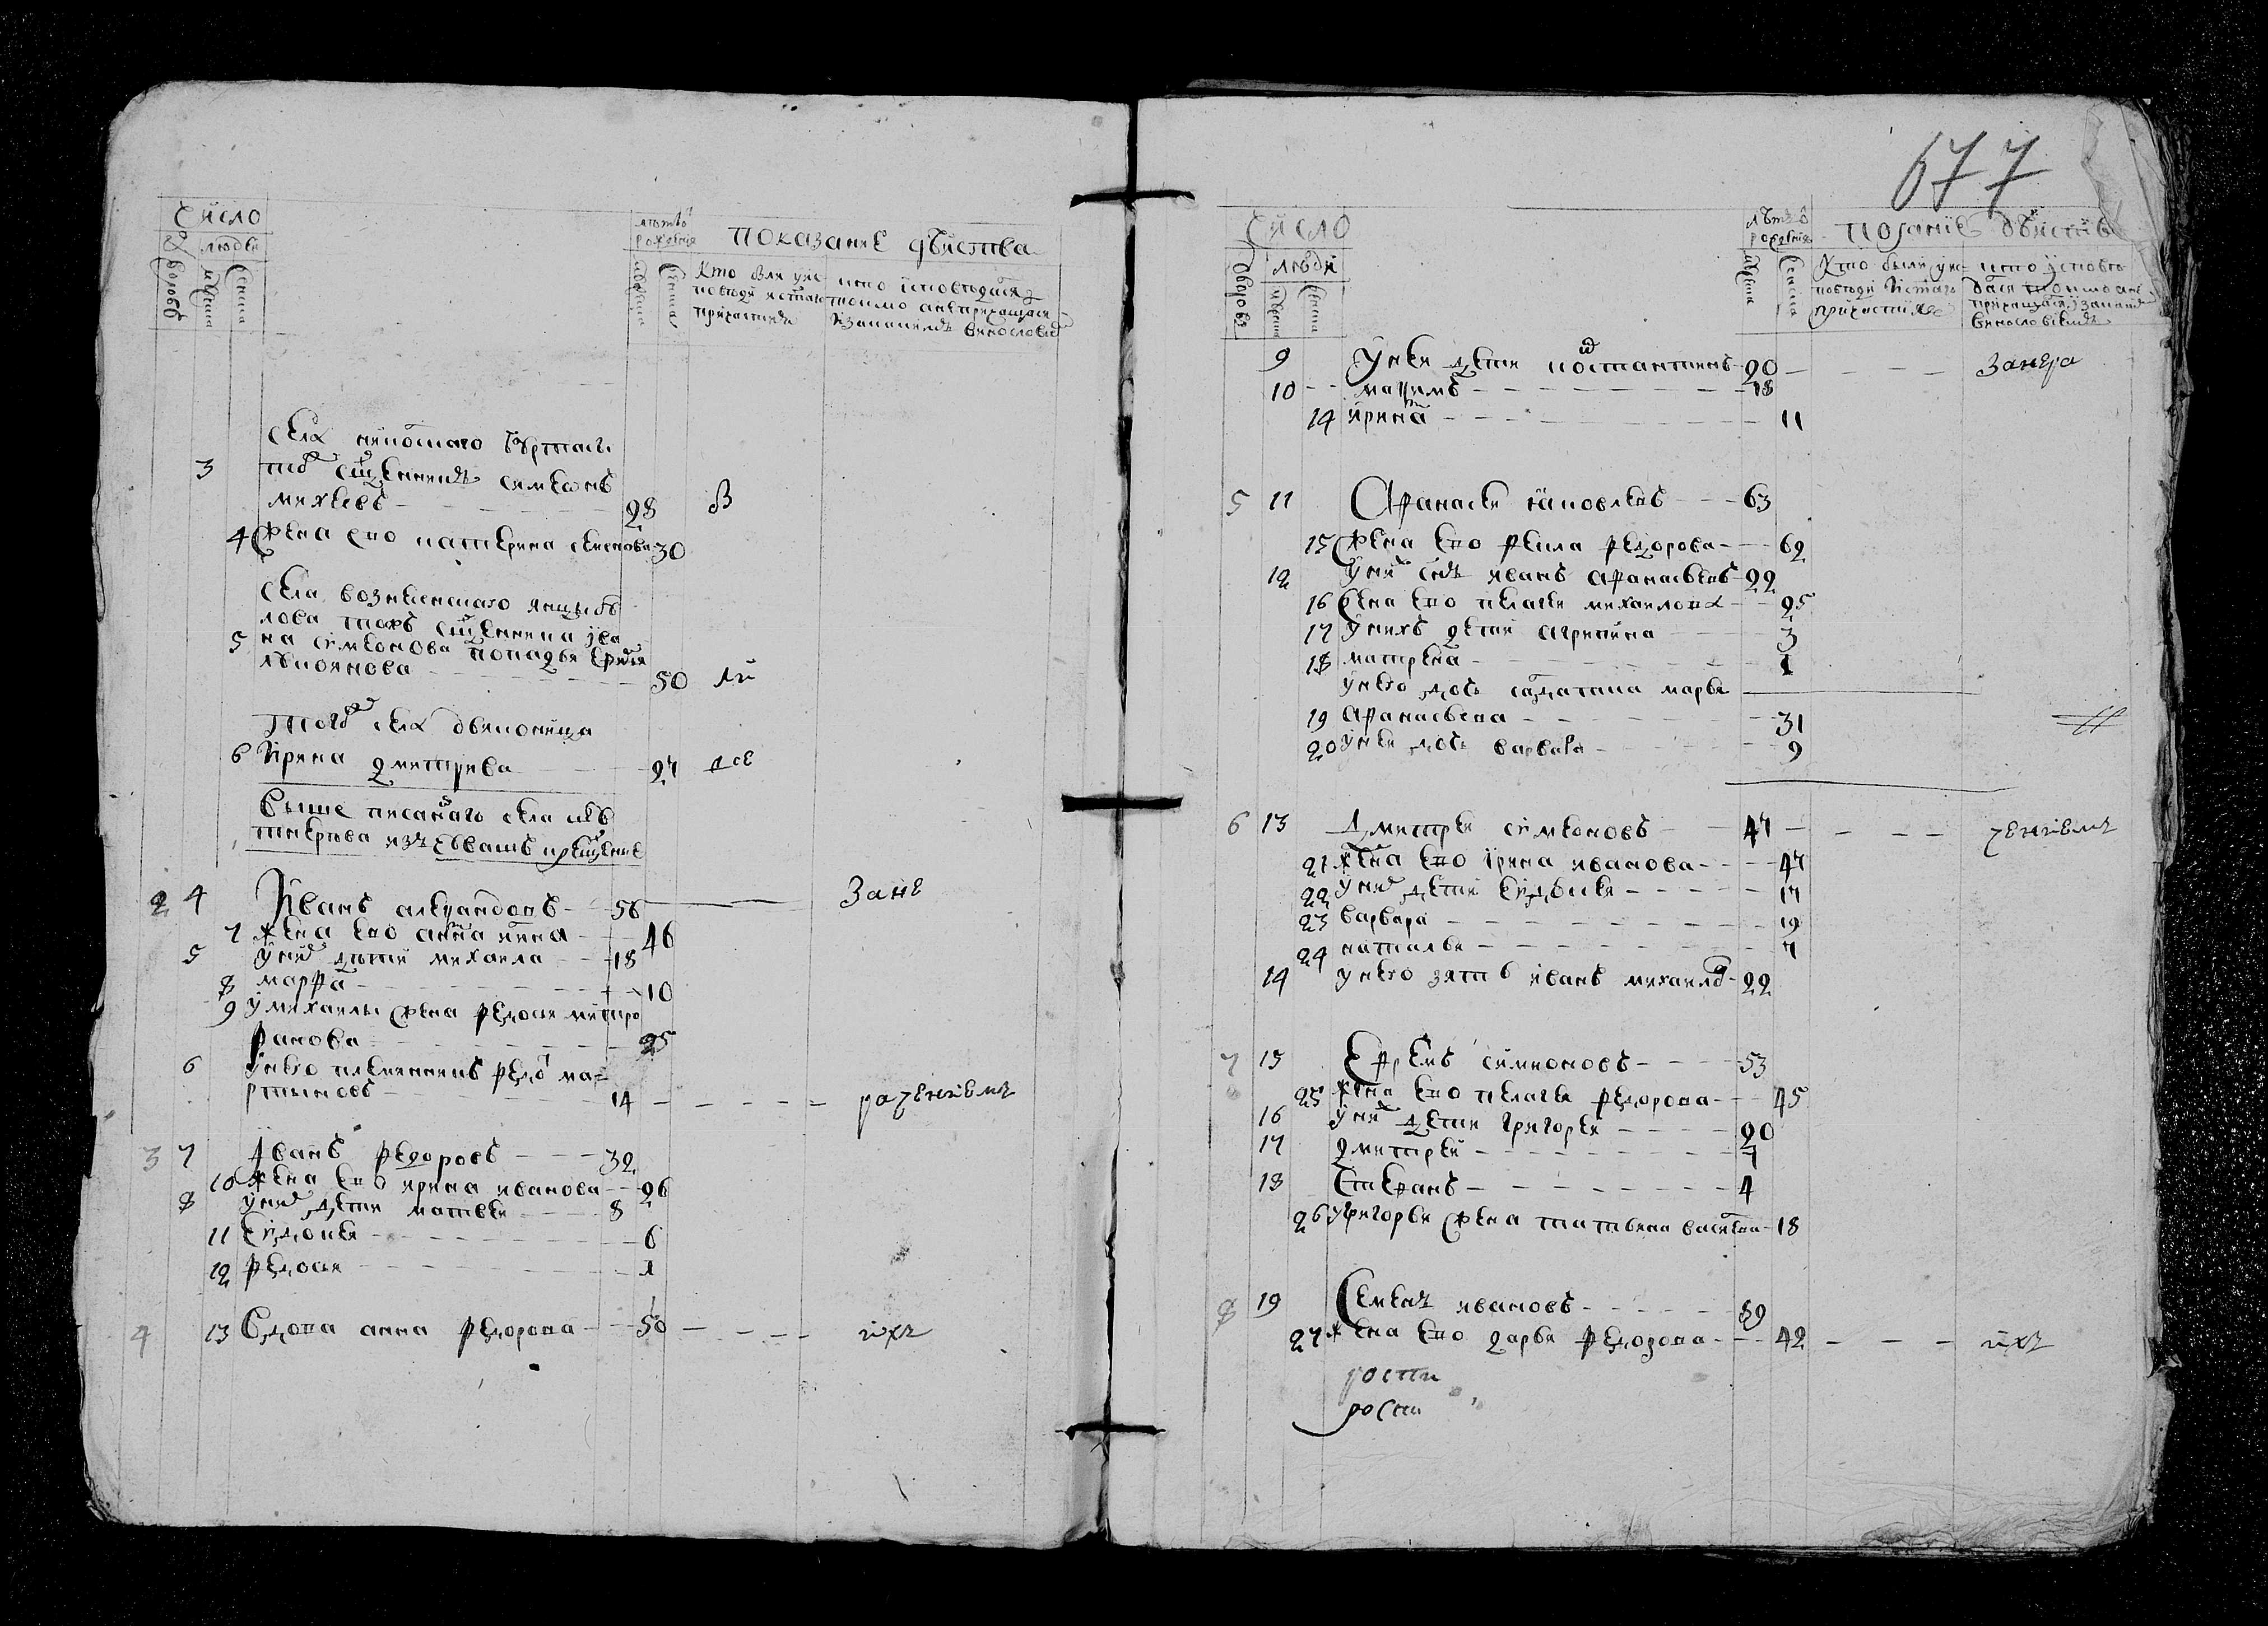 число
дворовъ
людей
мужеска
женска
лѣтъ ѿ рожденія
мужеска
женска
показание дѣиства
кто были у ис
поведи и стаго
причастия
кто исповедался
токмо а не причащался
и за каким винословие
села никольскаго
3 тоѣ сщенникъ симеонъ
михеевъ 28 в
4 жена ево катерина 30
села вознесенскаго
лова тожъ сщенника ива
5 на симеонова попадья
50 ли
того села дьяконица
6 Ирена дмитрева 27 all
выше писанаго села
2 4 Иванъ 56 зане
7 жена ево анна 46
5 у них дети михаила 18
8 марфа 10
9 у михаилы жена федосья митро
фанова 25
6 у него племянникъ федоръ ма
ртыновъ 14 рачениемъ
3 7 Иванъ федоровъ 32
10 жена ево ирина иванова 26
8 у них дети матвеи 8
11 евдокея 6
12 федосья 1
4 13 вдова анна федорова 50 ихъ
677
число
дворовъ
людей
мужеска
женска
лѣтъ ѿ рожения
мужеска
женска
показание дѣиства
кто были у ис
поведи и стаго
причастия
кто исповѣ
дался токмо а не
причащался и за каким
винословиемъ
9 у неи дети костантинъ 20 занера
10 максимъ 18
14 ирина 11
5 11 Афанасеи яковлевъ 63
15 жена ево фекла федорова 62
12 у них снъ иванъ афанасьевъ 22
16 жена ево пелагея михаилова 25
17 у нихъ дети агрепина 3
18 матрена 1
у него дочь салдатка марья
19 афанасьева 31
20 у неи дочь варвара 9
6 13 Дмитреи симеоновъ 47 рениемъ
21 жена ево ирина иванова 47
22 у них дети евдокея 17
23 варвара 19
24 наталья 7
14 у него зять иванъ михаиловъ 22
7 15 Ефремъ симионовъ 53
25 жена ево пелагея федорова 45
16 у них дети григореи 20
17 дмитреи 7
18 степанъ 4
26 у григорья жена татьяна васильева 18
8 19 Семенъ ивановъ 59
27 жена ево дарья федорова 42 ихъ
рости
рости